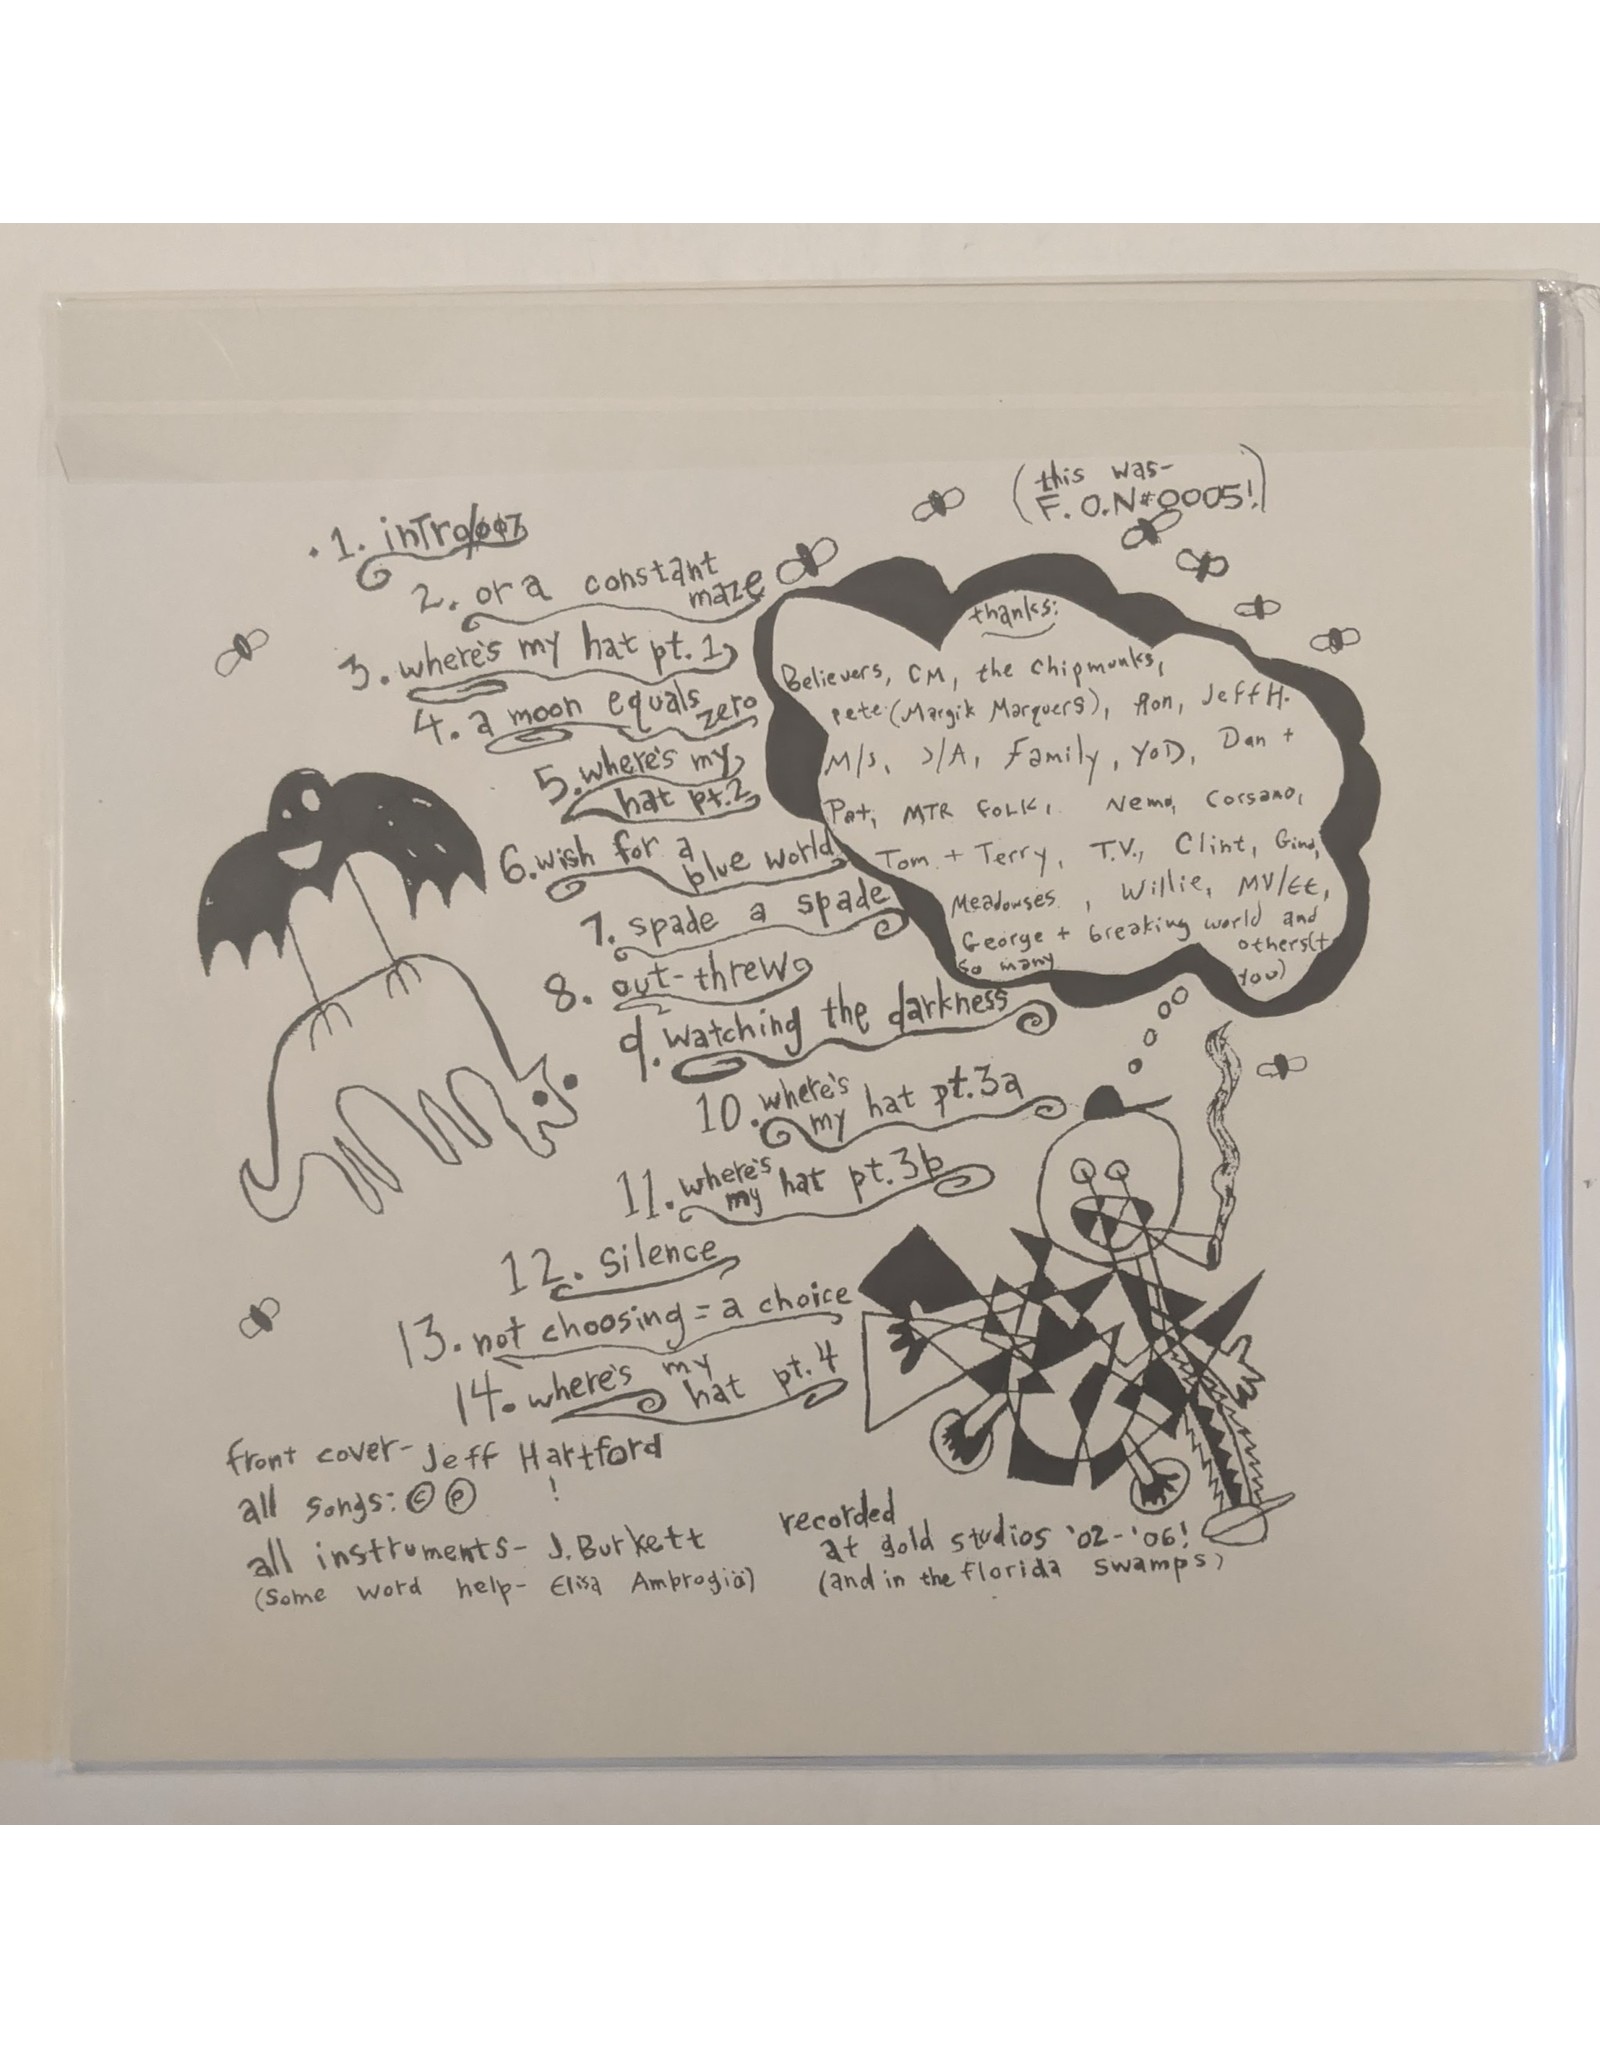 (this was-
F.O.N#0005!)
1. intro/007
2. or a constant
maze
3. where's my hat pt. 1
4. a moon equals
zero
5. where's my
hat pt. 2
6. wish for a
blue world
7. spade a spade
8. out-threw
9. watching the darkness
10. where's
my hat pt. 3a
11. where's
my hat pt. 3b
12. silence
13. not choosing = a choice
14. where's my
hat pt. 4
thanks:
Believers, CM, the Chipmunks,
Pete (Margik Marquers), Ron, Jeff H.
M/S, J/A, Family, YOD, Dan +
Pat, MTR FOLK, Nemo, Corsano,
Tom + Terry, T.V., Clint, Gino,
Meadowses, Willie, MV/EE,
George + breaking world and
so many others (+
you)
front cover- Jeff Hartford
!
all songs: © ℗
all instruments- J. Burkett
(some word help- Elisa Ambrogio)
recorded
at gold studios '02-'06!
(and in the florida swamps)